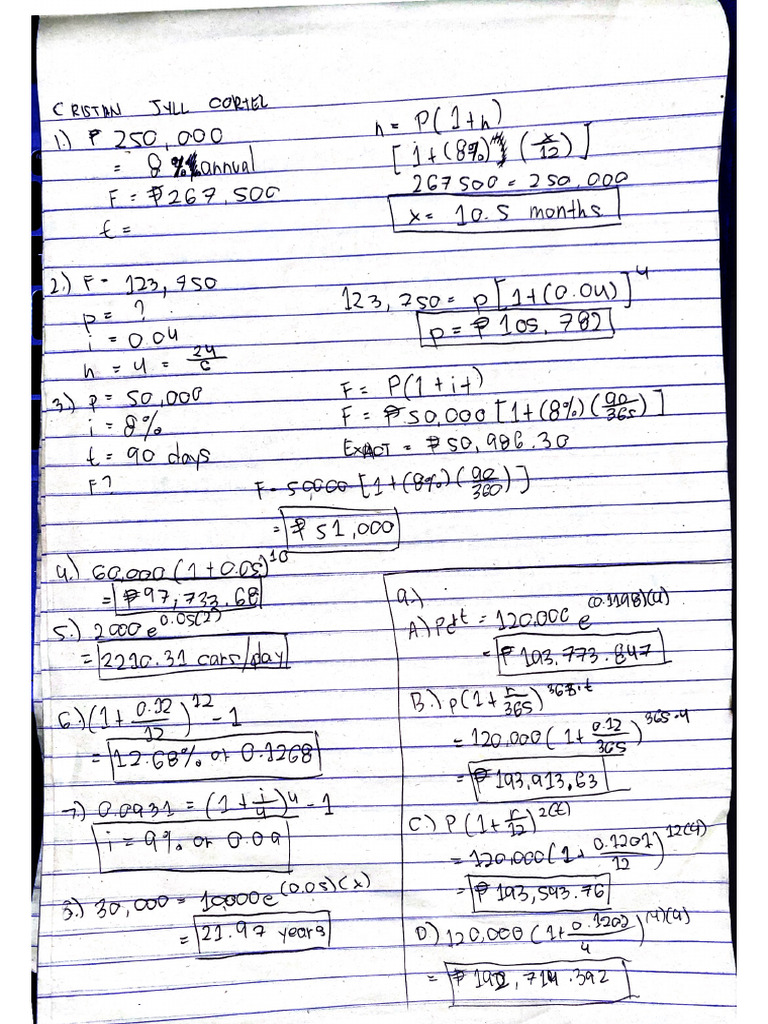 CRISTAN JYLL CORTEL
1.) ₱ 250,000
= 8 % annual
F = ₱267,500
t =
h = P(1+h)
[1+(8%) (x/12)]
267500 = 250,000
x = 10.5 months
2.) F = 123,750
p = ?
i = 0.04
h = 4 = 24/6
123,750 = p[1+(0.04)]^4
p = ₱ 105,782
3.) p = 50,000
i = 8%
t = 90 days
F?
F = P(1+it)
F = ₱50,000 [1+(8%)(90/365)]
EXACT = ₱50,986.30
F = 50000 [1+(8%)(90/360)]
= ₱51,000
4.) 60,000(1+0.05)^10
= ₱97,733.68
5.) 2000e^0.05(2)
= 2210.31 cars/day
6.) (1+0.12/12)^12 - 1
= 12.68% or 0.1268
7.) 0.0931 = (1+i/4)^4 - 1
i = 9% or 0.09
8.) 30,000 = 10,000e^(0.05)(x)
= 21.97 years
9.)
A.) Pe^rt = 120,000 e^(0.1198)(4)
= ₱193,773.847
B.) p(1+r/365)^365·t
= 120,000(1+0.12/365)^365·4
= ₱193,913.63
C.) P(1+r/12)^12(t)
= 120,000(1+0.1201/12)^12(4)
= ₱193,543.76
D.) 120,000(1+0.1202/4)^(4)(4)
= ₱192,714.392